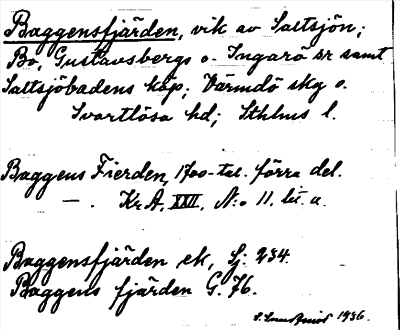 Baggensfjärden, vik av Saltsjön;
Bo, Gustavsbergs o. Ingarö sr samt
Saltsjöbadens köp; Värmdö skg o.
Svartlösa hd; Sthlms l.
Baggens Fierden, 1700-tal. förra del.
— . Kr.A. XXII. N:o 11. lit. a.
Baggensfjärden ek, Lj: 234.
Baggens fjärden G. 76.
1936.